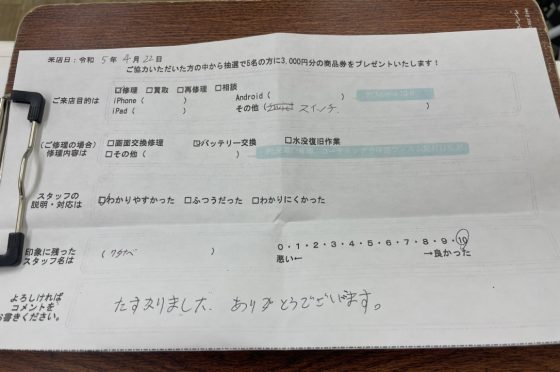 来店日：令和 5年 4月 22日
ご協力いただいた方の中から抽選で5名の方に3,000円分の商品券をプレゼントいたします！
ご来店目的は
☑修理 □買取 □再修理 □相談
iPhone ( ) Android ( )
iPad ( ) その他 ( スイッチ )
(ご修理の場合)
修理内容は
□画面交換修理 ☑バッテリー交換 □水没復旧作業
□その他 ( )
スタッフの
説明・対応は
☑わかりやすかった □ふつうだった □わかりにくかった
印象に残った
スタッフ名は
( ワタベ )
0・1・2・3・4・5・6・7・8・9・10
悪い← →良かった
よろしければ
コメントを
お書きください。
たすかりました. ありがとうございます。